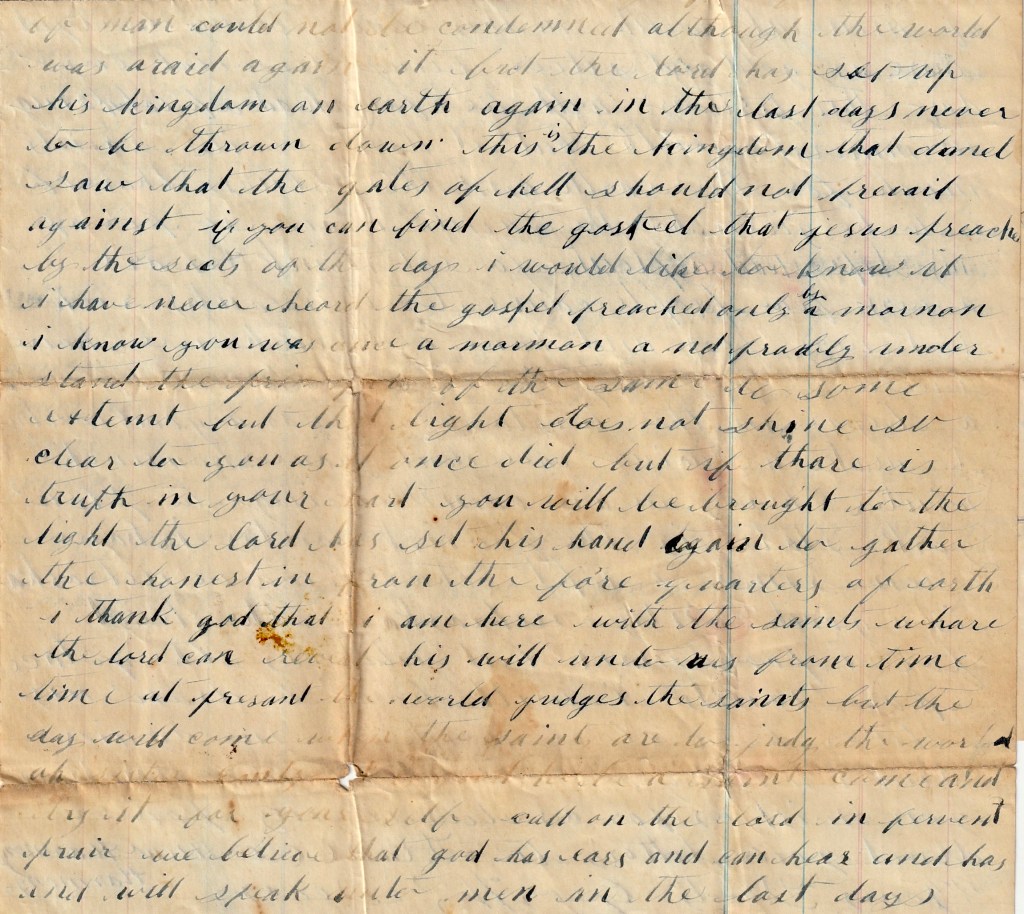 of man could not be condemned although the world
was araid against it but the lord has set up
his kingdom on earth again in the last days never
to be thrown down this is the kingdom that danel
saw that the gates of hell should not prevail
against if you can find the gospel that jesus preache
by the sects of the days i would like to know it
i have never heard the gospel preached only by a mormon
i know you was once a mormon and pradbly under
stand the of the same to some
extemt but the light does not shine so
clear to you as it once did but if thare is
truth in your hart you will be brought to the
light the lord has set his hand again to gather
the honest in from the fore quarters of earth
i thank god that i am here with the saints whare
the lord can reveal his will unto us from time
time at presant the world judges the saints but the
day will come when the saints are to judg the world
a come and
try it for your self call on the lord in fervent
prair we believe that god has ears and can hear and has
and will speak unto men in the last days